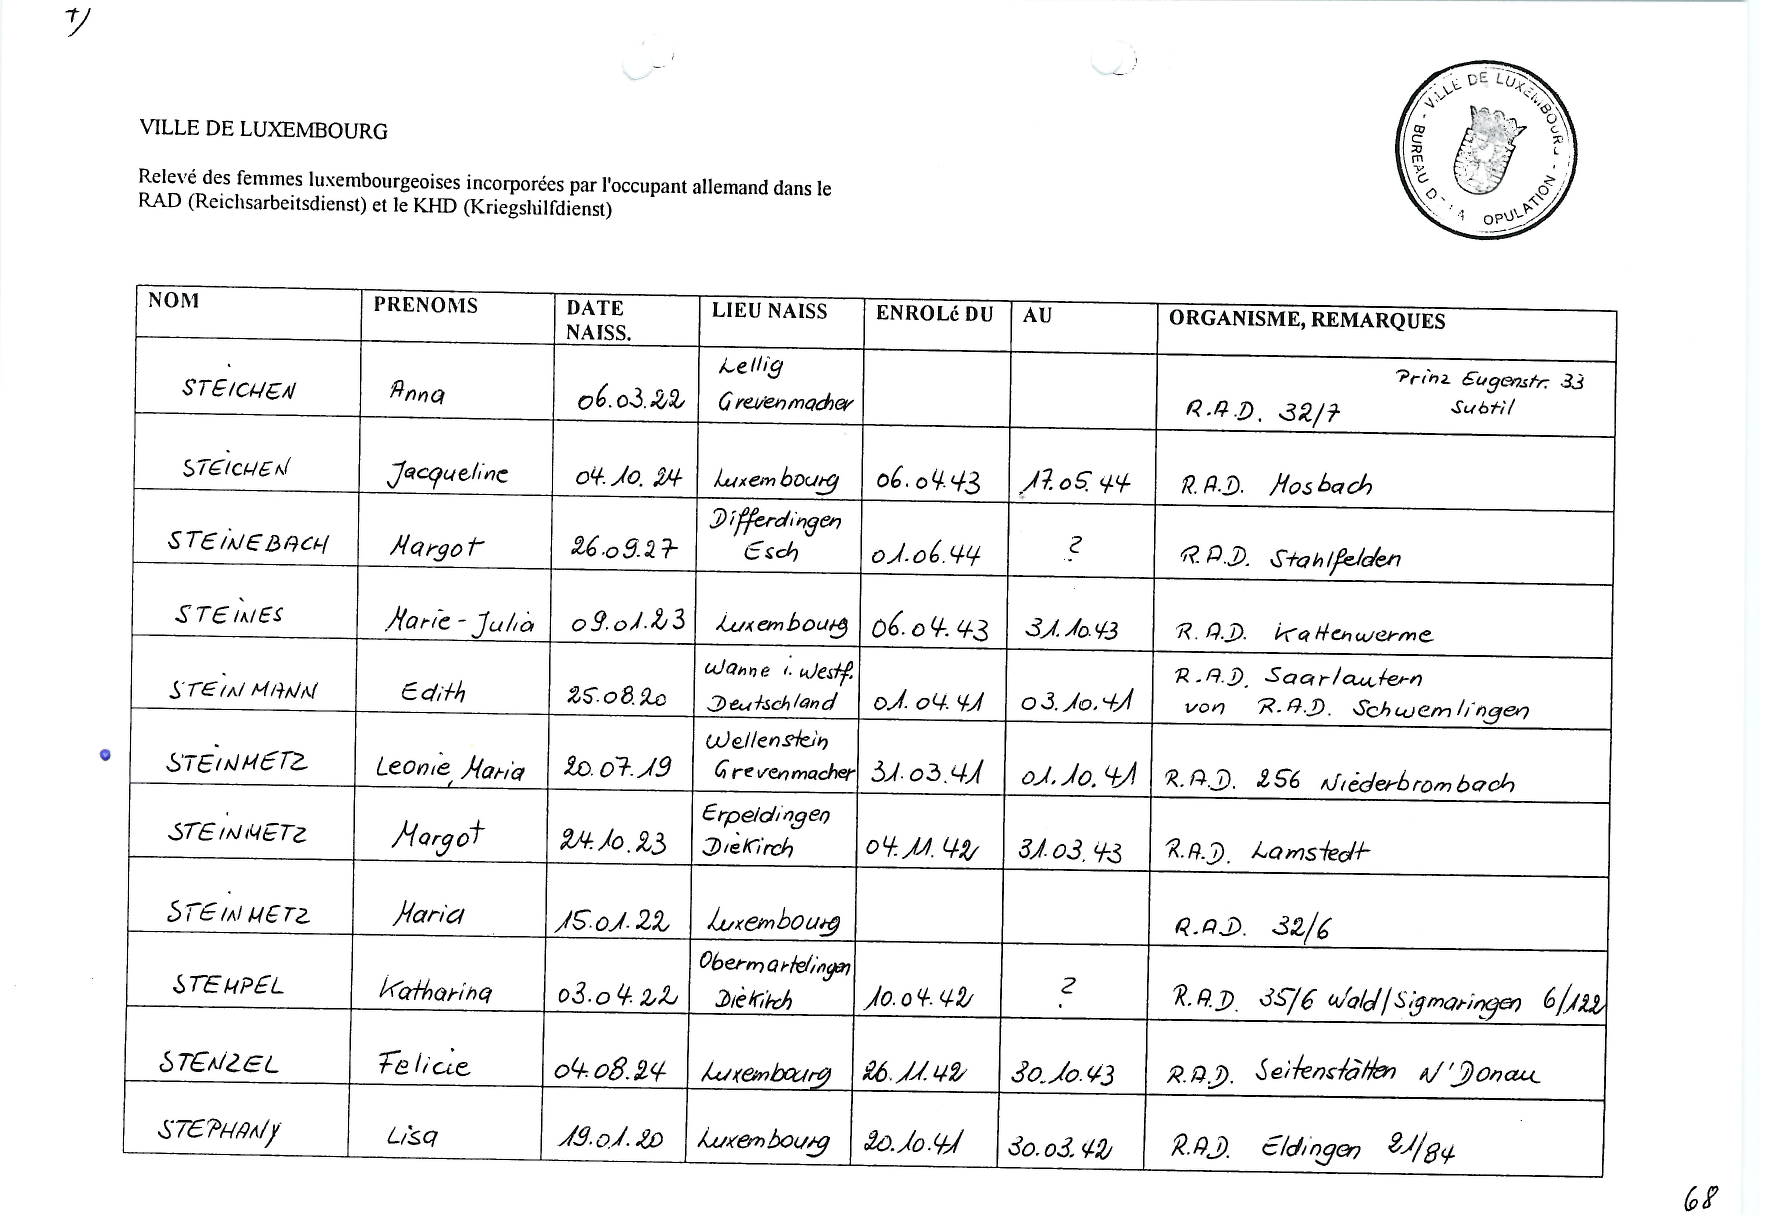 †)
VILLE DE LUXEMBOURG
- VILLE DE LUXEMBOURG - BUREAU D LA OPULATION
Relevé des femmes luxembourgeoises incorporées par l'occupant allemand dans le
RAD (Reichsarbeitsdienst) et le KHD (Kriegshilfdienst)
NOM PRENOMS DATE NAISS. LIEU NAISS ENROLé DU AU ORGANISME, REMARQUES
STEICHEN Anna 06.03.22 Lellig Grevenmacher R.A.D. 32/7 Prinz Eugenstr. 33 Subtil
STEICHEN Jacqueline 04.10.24 Luxembourg 06.04.43 17.05.44 R.A.D. Mosbach
STEINEBACH Margot 26.09.27 Differdingen Esch 01.06.44 ? R.A.D. Stahlfelden
STEINES Marie-Julia 09.01.23 Luxembourg 06.04.43 31.10.43 R.A.D. Kattenwerme
STEINMANN Edith 25.08.20 Wanne i. Westf. Deutschland 01.04.41 03.10.41 R.A.D. Saarlautern von R.A.D. Schwemlingen
STEINMETZ Leonie, Maria 20.07.19 Wellenstein Grevenmacher 31.03.41 01.10.41 R.A.D. 256 Niederbrombach
STEINMETZ Margot 24.10.23 Erpeldingen Diekirch 04.11.42 31.03.43 R.A.D. Lamstedt
STEINMETZ Maria 15.01.22 Luxembourg R.A.D. 32/6
STEMPEL Katharina 03.04.22 Obermartelingen Diekirch 10.04.42 ? R.A.D. 35/6 Wald/Sigmaringen 6/122
STENZEL Felicie 04.08.24 Luxembourg 26.11.42 30.10.43 R.A.D. Seitenstätten N'Donau
STEPHANY Lisa 19.01.20 Luxembourg 20.10.41 30.03.42 R.A.D. Eldingen 21/84
68